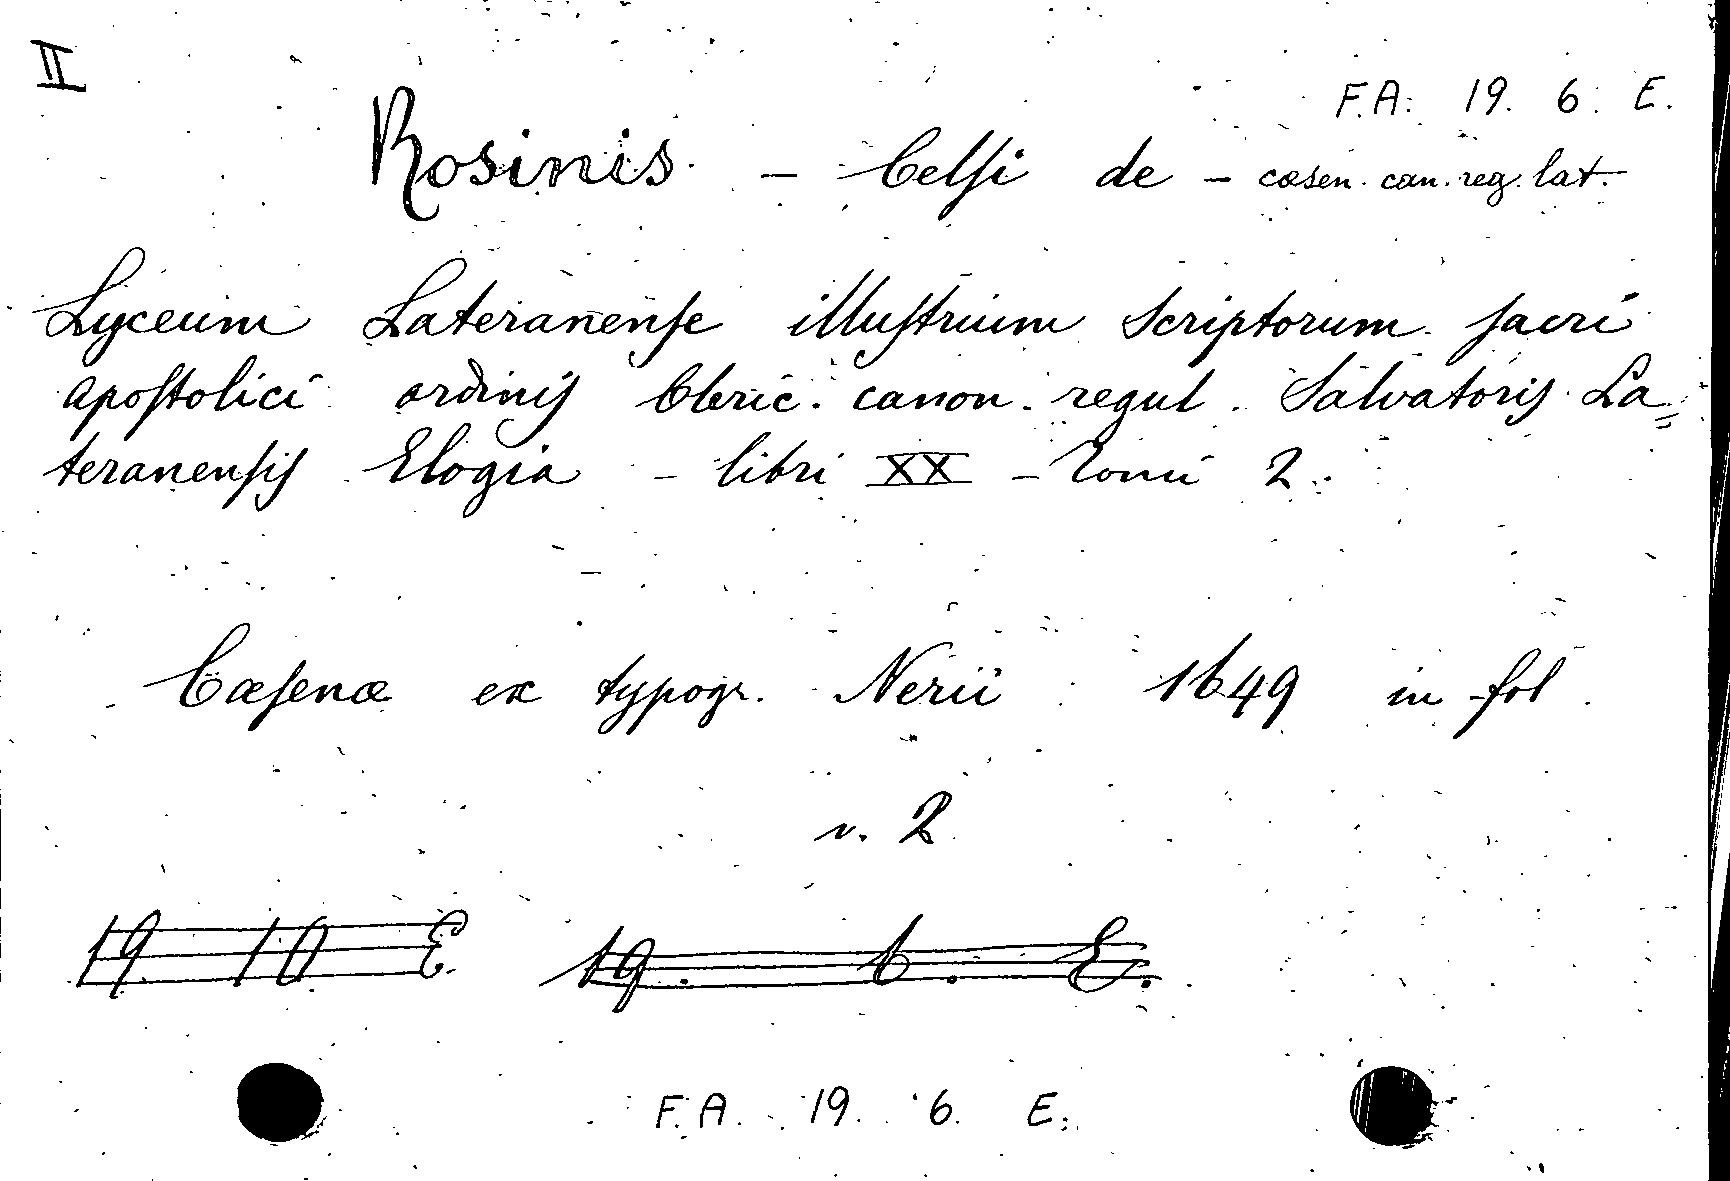 II
F.A. 19. 6. E.
Rosinis - Celsi de - cæsen. can. reg. lat.
Lyceum Lateranense illustrium scriptorum sacri
apostolici ordinis Cleric. canon. regul. Salvatoris La=
teranensis Elogia - libri XX - Tomi 2.
Cæsenæ ex typogr. Nerii 1649 in fol.
v. 2
19 10 E 19. 6. E.
F.A. 19. 6. E.